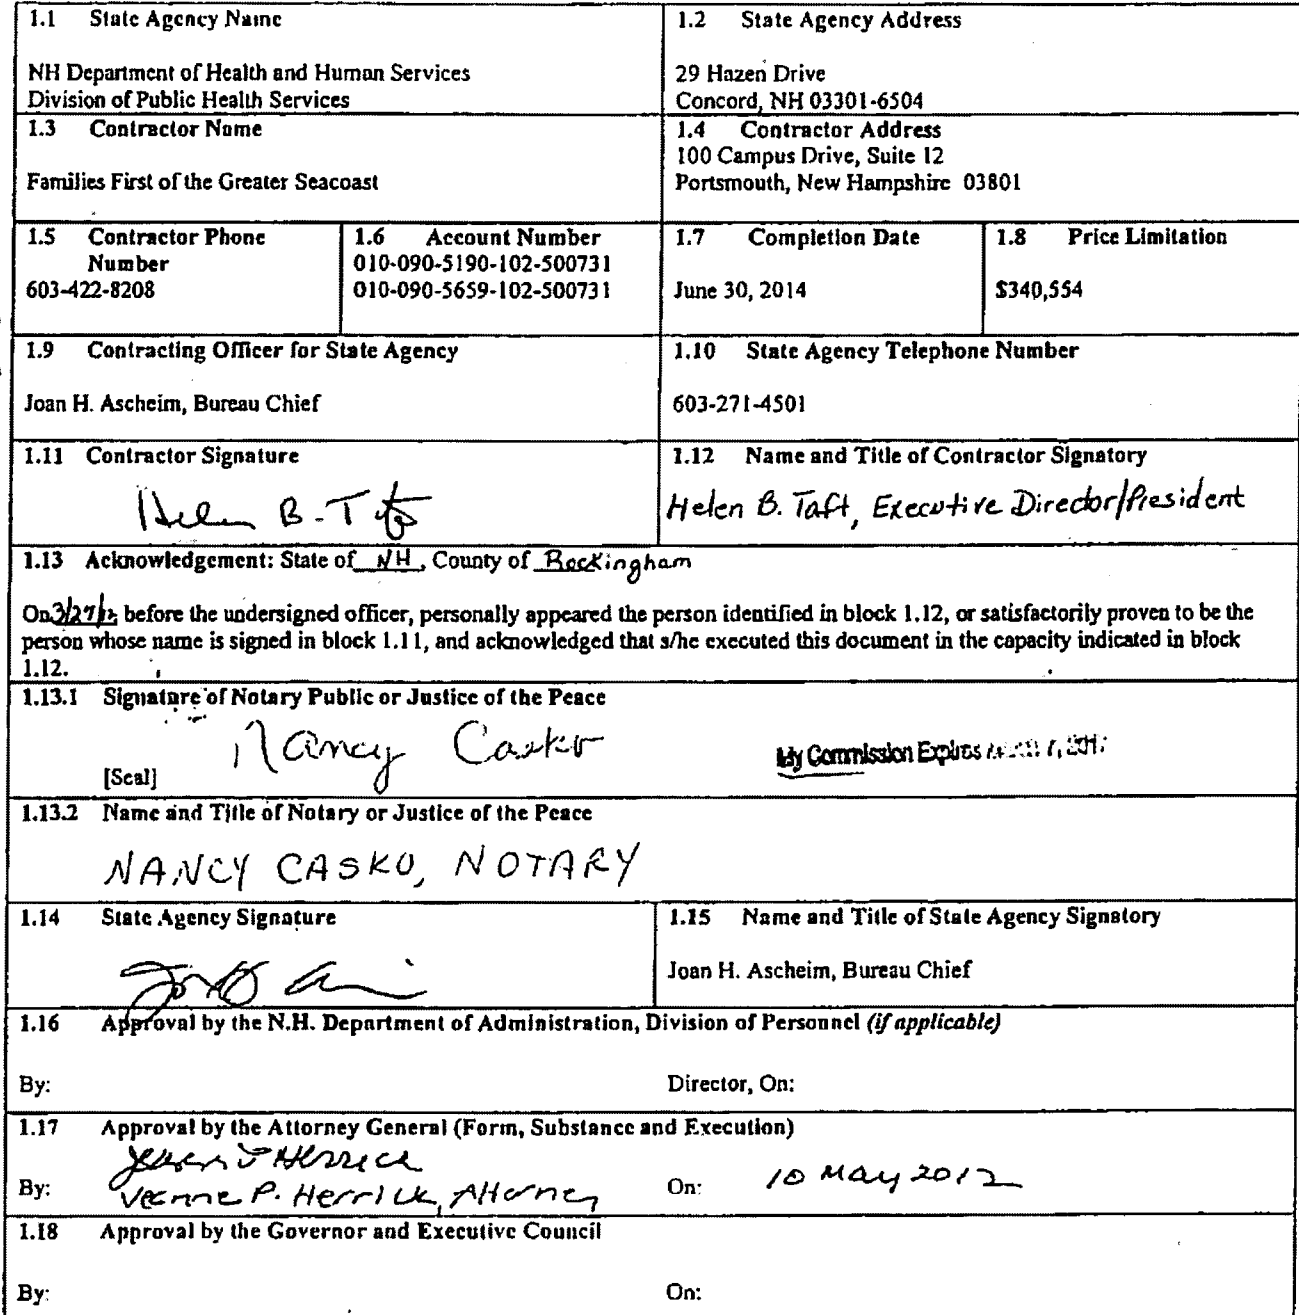 1.1 State Agency Name
NH Department of Health and Human Services
Division of Public Health Services
1.2 State Agency Address
29 Hazen Drive
Concord, NH 03301-6504
1.3 Contractor Name
Families First of the Greater Seacoast
1.4 Contractor Address
100 Campus Drive, Suite 12
Portsmouth, New Hampshire 03801
1.5 Contractor Phone
Number
603-422-8208
1.6 Account Number
010-090-5190-102-500731
010-090-5659-102-500731
1.7 Completion Date
June 30, 2014
1.8 Price Limitation
$340,554
1.9 Contracting Officer for State Agency
Joan H. Ascheim, Bureau Chief
1.10 State Agency Telephone Number
603-271-4501
1.11 Contractor Signature
Helen B. Taft
1.12 Name and Title of Contractor Signatory
Helen B. Taft, Executive Director/President
1.13 Acknowledgement: State of NH, County of Rockingham
On 3/27/12 before the undersigned officer, personally appeared the person identified in block 1.12, or satisfactorily proven to be the
person whose name is signed in block 1.11, and acknowledged that s/he executed this document in the capacity indicated in block
1.12.
1.13.1 Signature of Notary Public or Justice of the Peace
Nancy Casko
My Commission Expires
[Seal]
1.13.2 Name and Title of Notary or Justice of the Peace
NANCY CASKO, NOTARY
1.14 State Agency Signature
1.15 Name and Title of State Agency Signatory
Joan H. Ascheim, Bureau Chief
1.16 Approval by the N.H. Department of Administration, Division of Personnel (if applicable)
By: Director, On:
1.17 Approval by the Attorney General (Form, Substance and Execution)
By: P. Herrick, Attorney On: 10 May 2012
1.18 Approval by the Governor and Executive Council
By: On: